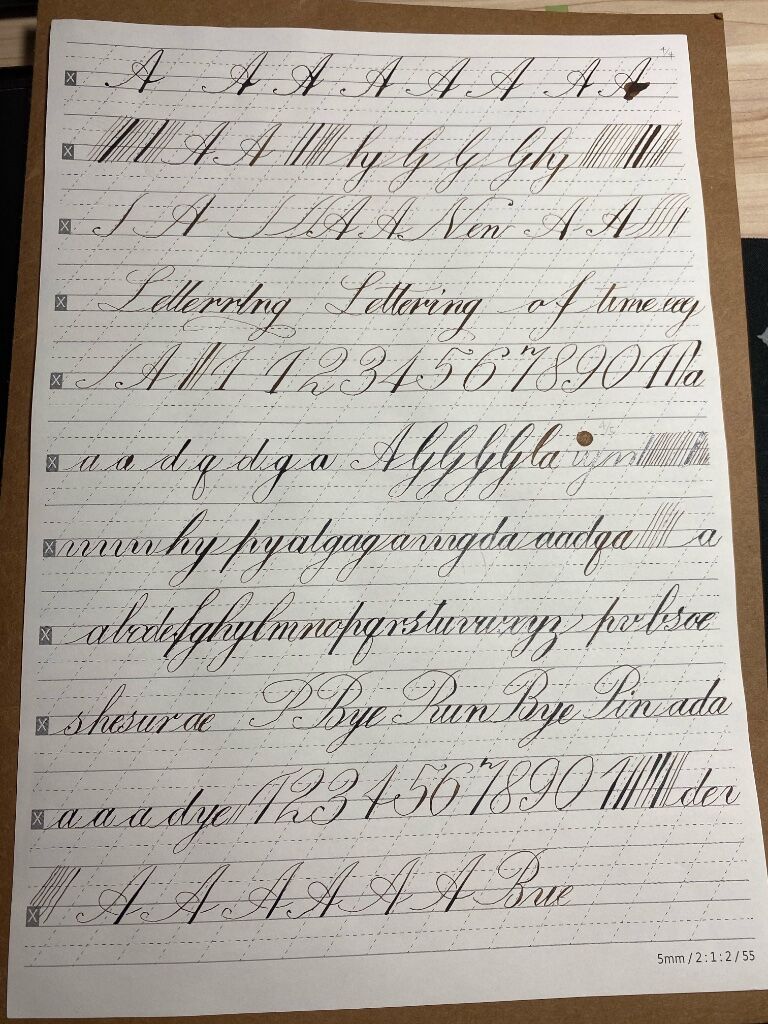 4/4
X A A A A A A A A
X A A ly G G G Gly
X A A A New A A
X Letterrlng Lettering of time
X A 1 1 2 3 4 5 6 7 8 9 0 1 a
4/5
X a a d q d g a A G G G G la
X hy pyalgaga aadqa a
X abcdefghylmnopqrstuvwxyz
X shesurae P Bye Run Bye Pin ada
X a a a dye 1 2 3 4 5 6 7 8 9 0 1 der
X A A A A A A Bue
5mm / 2 : 1 : 2 / 55